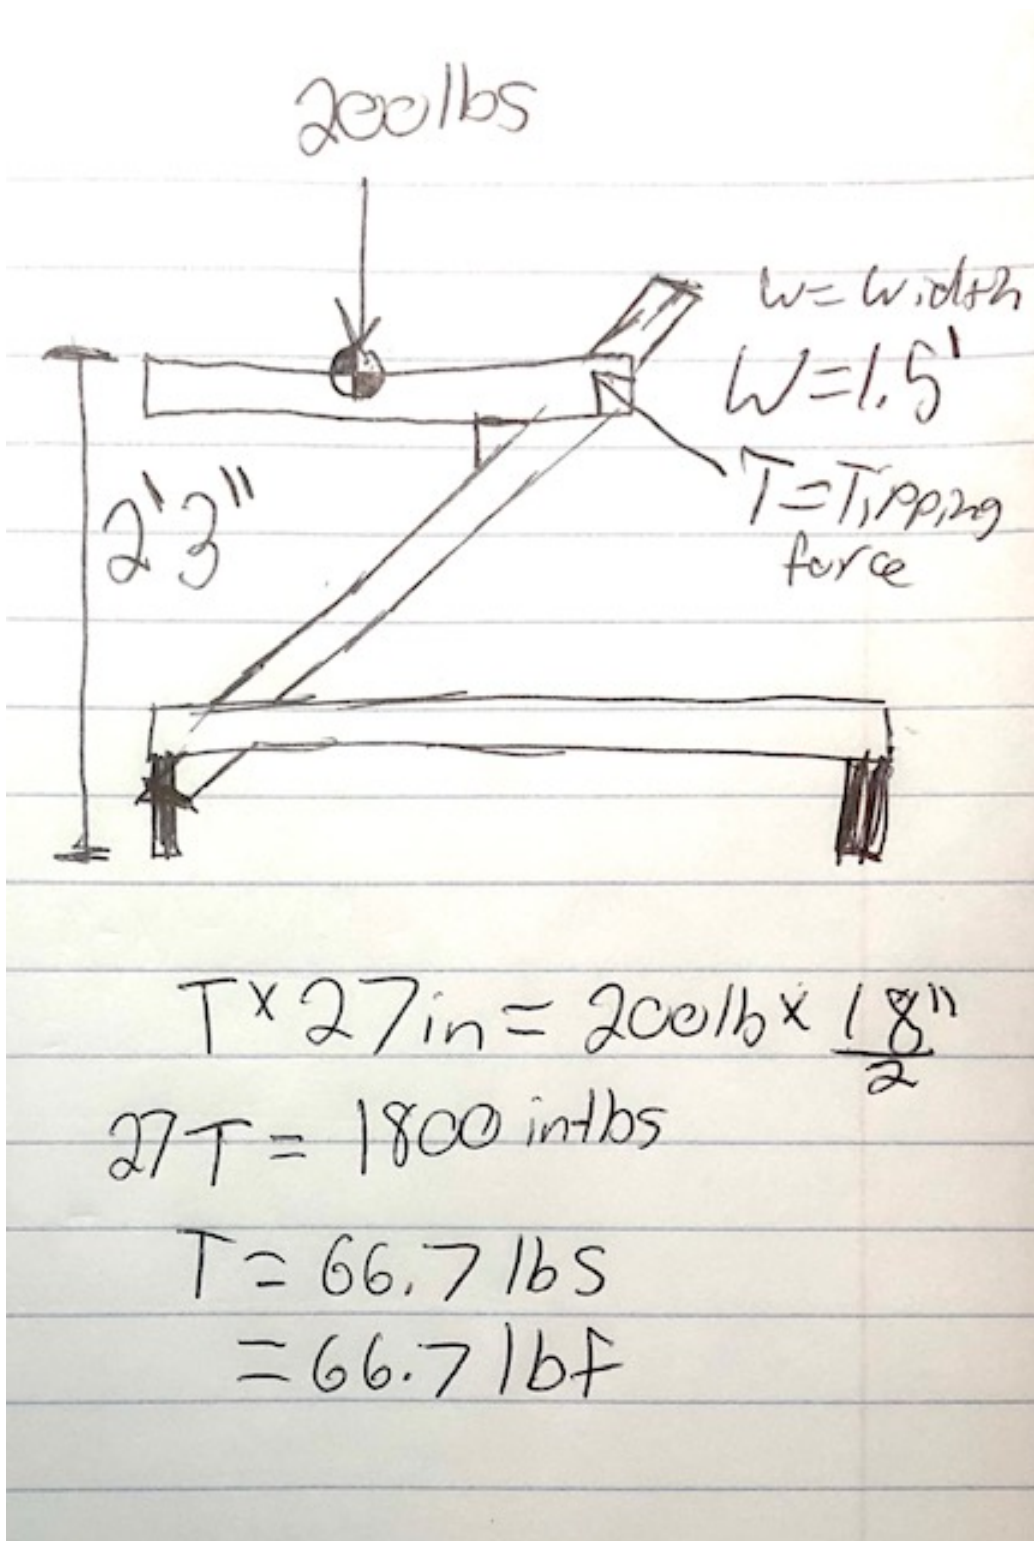 200lbs
W=Width
W=1.5'
T=Tipping
force
2'3"
T×27in=200lb×18"/2
27T=1800in+lbs
T=66.7lbs
=66.7lbf